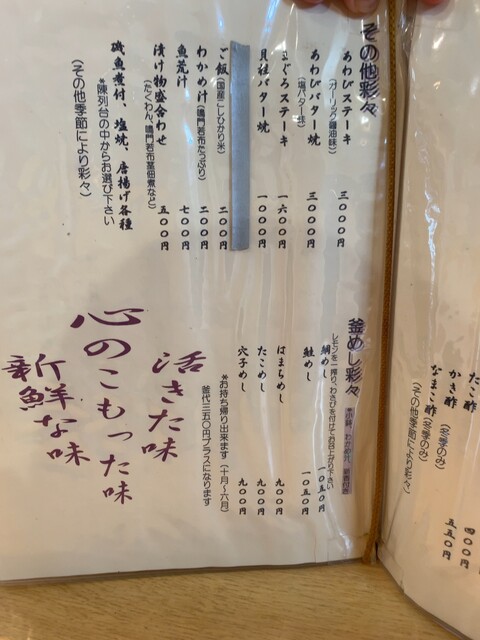 たこ酢 四〇〇円
かき酢 (冬季のみ)
なまこ酢 (冬季のみ) 五五〇円
(その他季節により彩々)
その他彩々
あわびステーキ 三〇〇〇円
(ガーリック醤油味)
あわびバター焼 三〇〇〇円
(塩バター味)
まぐろステーキ 一六〇〇円
貝柱バター焼 一〇〇〇円
ご飯(国産こしひかり米) 二〇〇円
わかめ汁(鳴門若布たっぷり) 二〇〇円
魚荒汁 七〇〇円
漬け物盛合わせ 五〇〇円
(たくわん、鳴門若布茎佃煮など)
磯魚煮付、塩焼、唐揚げ各種
*陳列台の中からお選び下さい
(その他季節により彩々)
釜めし彩々
*小鉢、わかめ汁、新香付き
レモンを一搾り、わさびを付けてお召上がり下さい
鯛めし 一〇五〇円
鮭めし 一〇五〇円
はまちめし 九〇〇円
たこめし 九〇〇円
穴子めし 九〇〇円
*お持ち帰り出来ます(十月〜六月)
釜代三五〇円プラスになります
活きた味
心のこもった味
新鮮な味